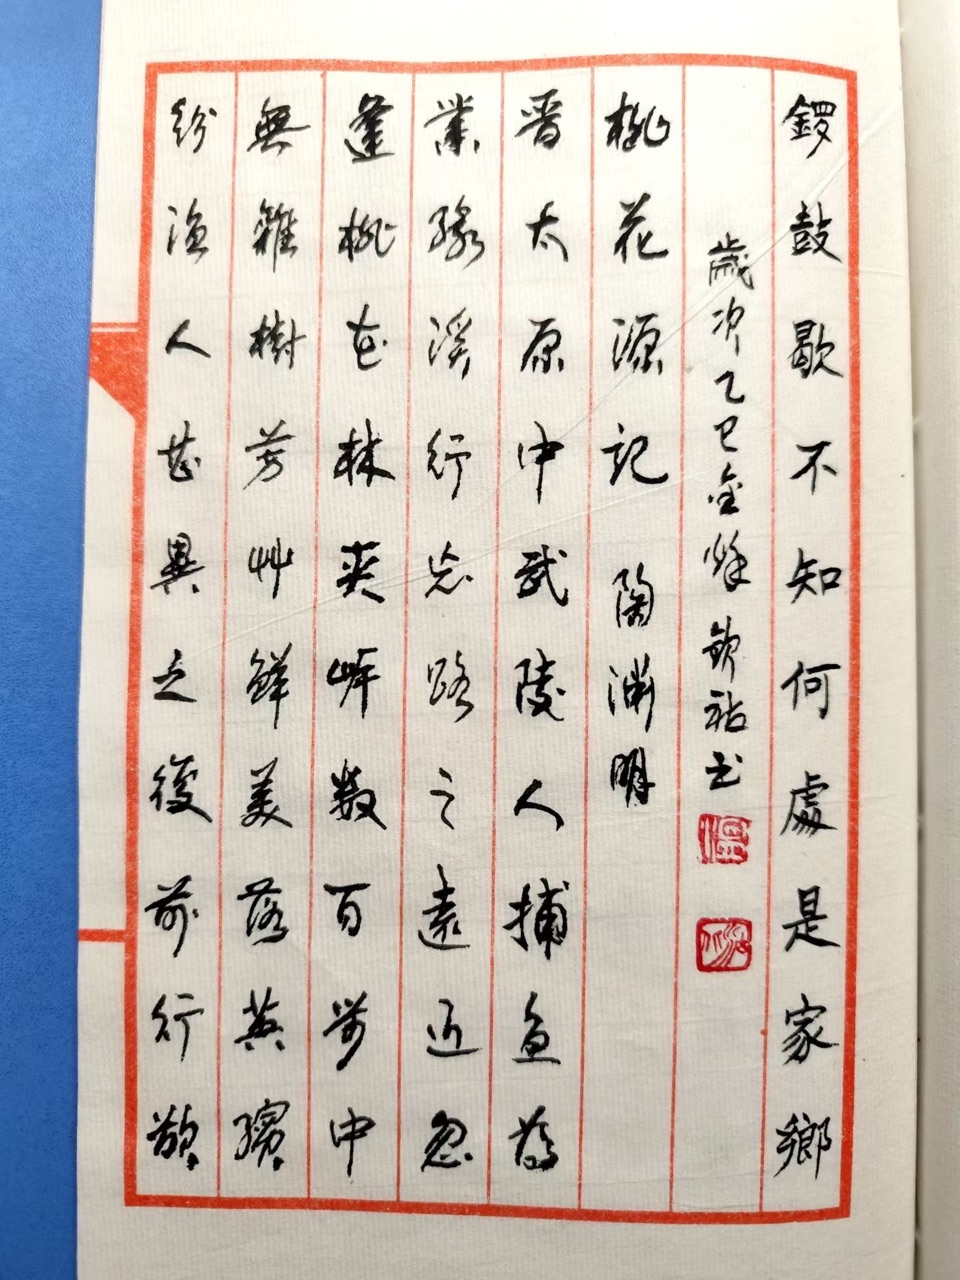 鑼鼓歇不知何處是家鄉
歲次乙巳金秋欽祐書
桃花源記 陶淵明
晋太原中武陵人捕魚為
業緣溪行忘路之遠近忽
逢桃花林夾岸數百步中
無雜樹芳艸鮮美落英繽
紛漁人甚異之復前行欲